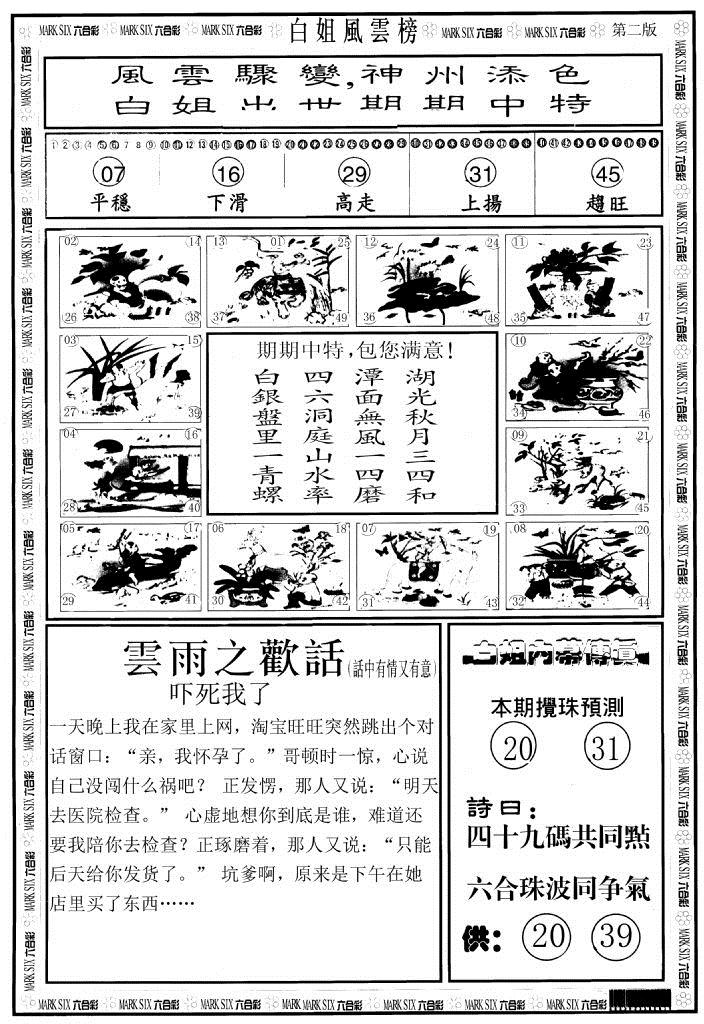 MARK SIX 六合彩 MARK SIX 六合彩 MARK SIX 六合彩 白姐風雲榜 MARK SIX 六合彩 MARK SIX 六合彩 第二版
風雲驟變,神州添色
白姐出世期期中特
1 2 3 4 5 6 7 8 9 10 11 12 13 14 15 16 17 18 19 20 21 22 23 24 25 26 27 28 29 30 31 32 33 34 35 36 37 38 39 40 41 42 43 44 45 46 47 48 49
07 16 29 31 45
平穩 下滑 高走 上揚 趨旺
02 14 13 01 25 12 24 11 23
26 38 37 49 36 48 35 47
03 15
27 39
04 16
28 40
期期中特,包您满意!
湖光秋月三四和
潭面無風一四磨
四六洞庭山水率
白銀盤里一青螺
10 22
34 46
09 21
33 45
05 17 06 18 07 19 08 20
29 41 30 42 31 43 32 44
雲雨之歡話(話中有情又有意)
吓死我了
一天晚上我在家里上网，淘宝旺旺突然跳出个对
话窗口：“亲，我怀孕了。”哥顿时一惊，心说
自己没闯什么祸吧？ 正发愣，那人又说：“明天
去医院检查。” 心虚地想你到底是谁，难道还
要我陪你去检查？正琢磨着，那人又说：“只能
后天给你发货了。” 坑爹啊，原来是下午在她
店里买了东西……
白姐内幕傳真
本期攪珠預測
20 31
詩曰：
四十九碼共同點
六合珠波同争氣
供： 20 39
MARK SIX 六合彩 MARK SIX 六合彩 MARK SIX 六合彩 MARK SIX 六合彩 MARK SIX 六合彩 MARK SIX 六合彩 MARK SIX 六合彩